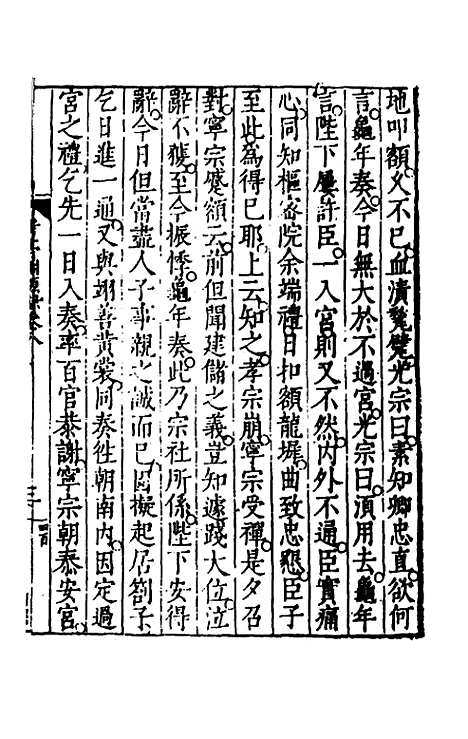 地叩額久不已血漬甃甓光宗曰素知卿忠直欲何
言龜年奏今日無大於不過宮光宗曰須用去龜年
言陛下屢許臣一入宮則又不然內外不通臣實痛
心同知樞密院余端禮曰扣額龍墀曲致忠懇臣子
至此為得已耶上云知之孝宗崩寧宗受禪是夕召
對寧宗蹙額云前但聞建儲之義豈知遽踐大位泣
辭不獲至今振悸龜年奏此乃宗社所係陛下安得
辭今日但當盡人子事親之誠而已因擬起居劄子
乞日進一通又與翊善黃裳同奏往朝南內因定過
宮之禮乞先一日入奏率百官恭謝寧宗朝泰安宮